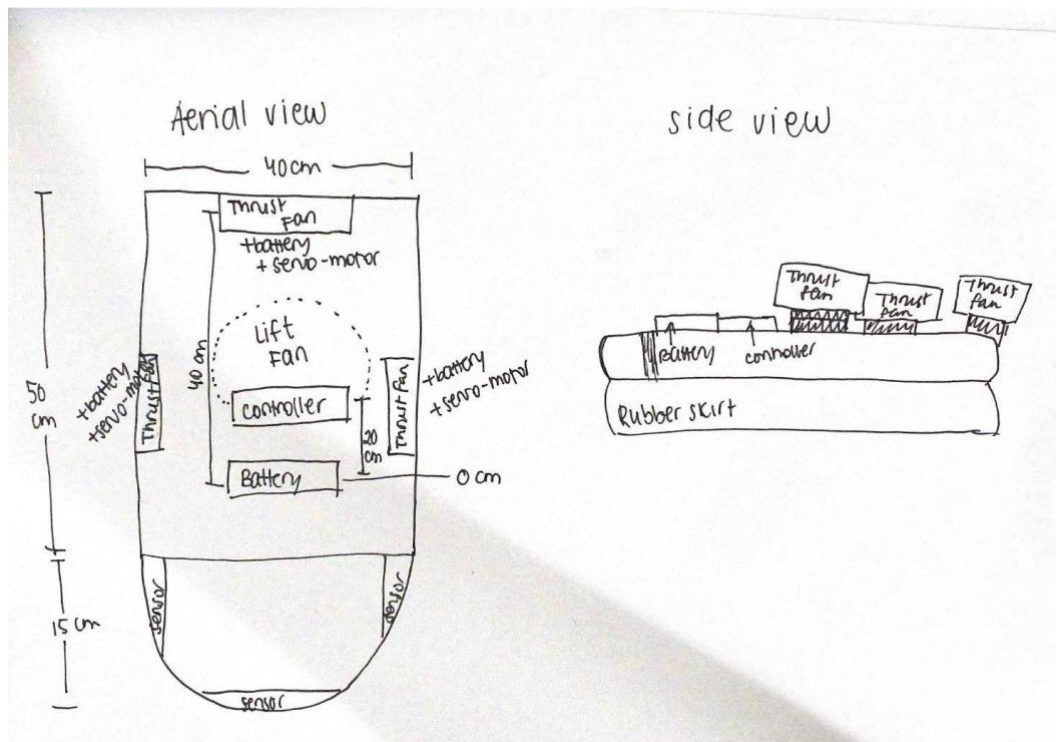 Aerial view
40cm
Thrust
Fan
+battery
+servo-motor
Lift
Fan
40 cm
50
cm
+battery
+servo-motor
Thrust Fan
Controller
20
cm
Thrust Fan
+battery
+servo-motor
Battery
0 cm
15 cm
sensor
sensor
sensor
side view
Thrust
fan
Thrust
fan
Thrust
fan
Battery
controller
Rubber skirt